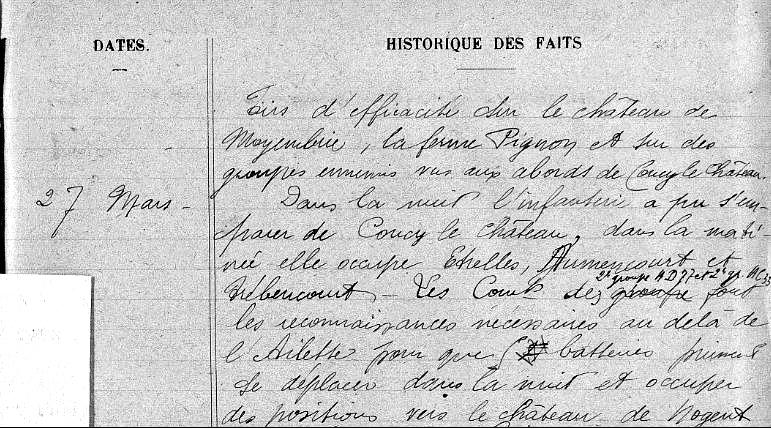 DATES.
HISTORIQUE DES FAITS
Tirs d'efficacité sur le château de
Moyembrie, la ferme Pignon et sur des
groupes ennemis vus aux abords de Coucy le Château.
27 Mars - Dans la nuit l'infanterie a pu s'em-
parer de Coucy le Château, dans la mati-
née elle occupe Etrelles, Aumencourt et
2e groupe AD 77 et 2e gr. AC
Trébencourt - Les Comts des groupe font
les reconnaissances nécessaires au delà de
l'Ailette pour que batteries puissent
se déplacer dans la nuit et occuper
des positions vers le château de Nogent